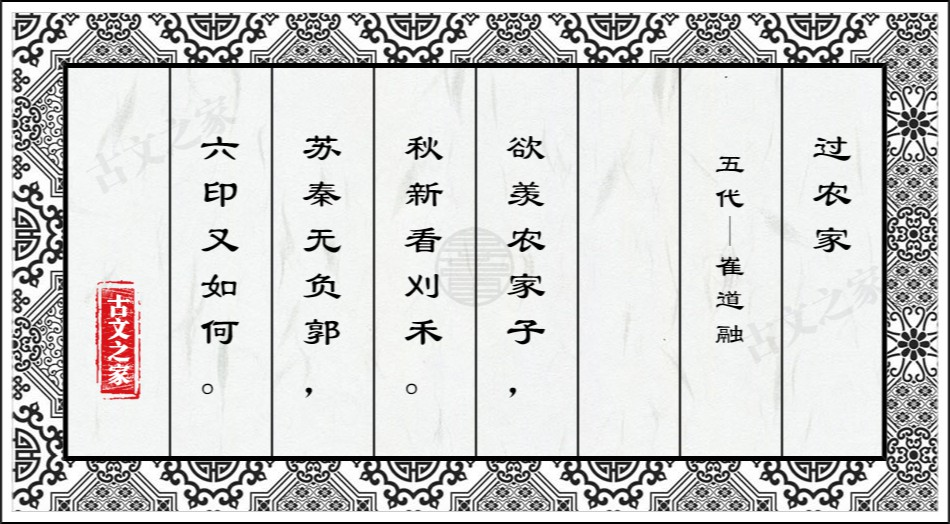 过农家
五代——崔道融
欲羡农家子，
秋新看刈禾。
苏秦无负郭，
六印又如何。
古文之家
古文之家
古文之家